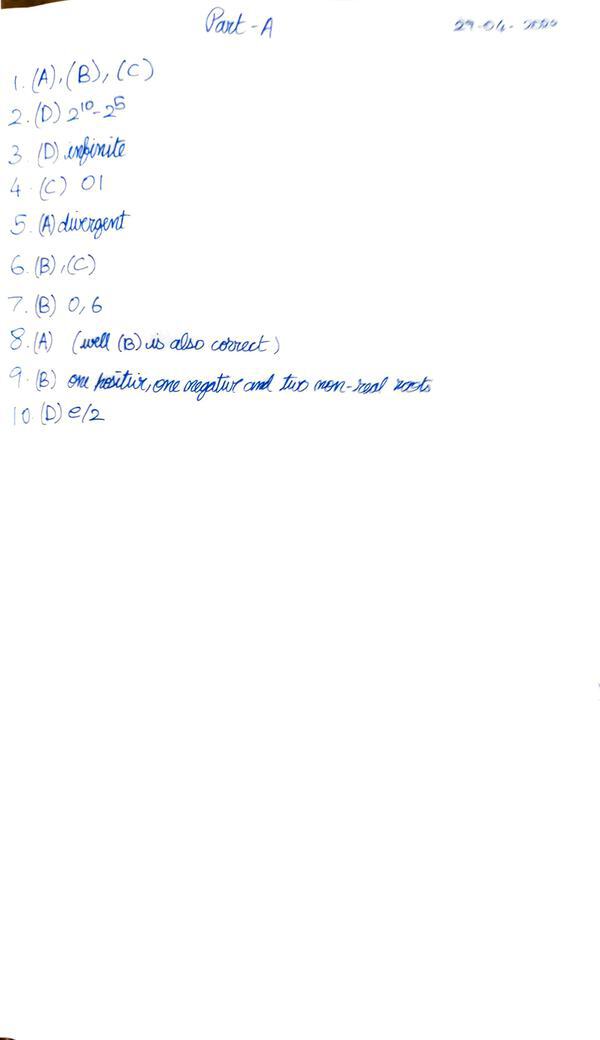 Part - A
29-04-
1. (A), (B), (C)
2. (D) 2¹⁰ - 2⁵
3. (D) infinite
4. (C) 01
5. (A) divergent
6. (B), (C)
7. (B) 0, 6
8. (A) (well (B) is also correct)
9. (B) one positive, one negative and two non-real roots
10. (D) e/2